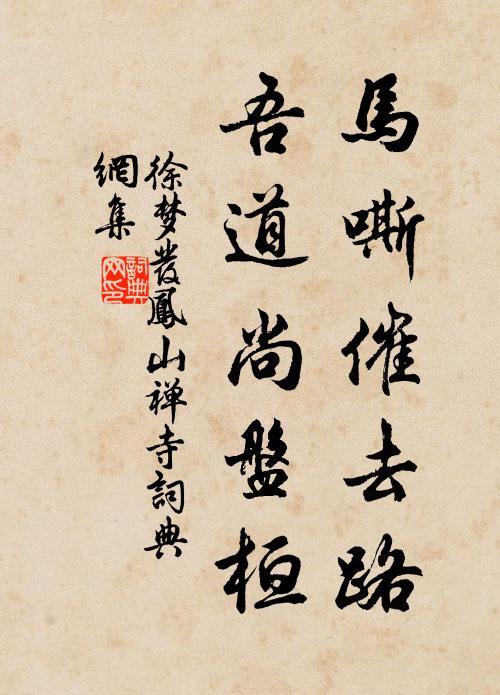 馬嘶催去路
吾道尚盤桓
徐梦發鳳山禅寺詞典
網集
詞典
网印